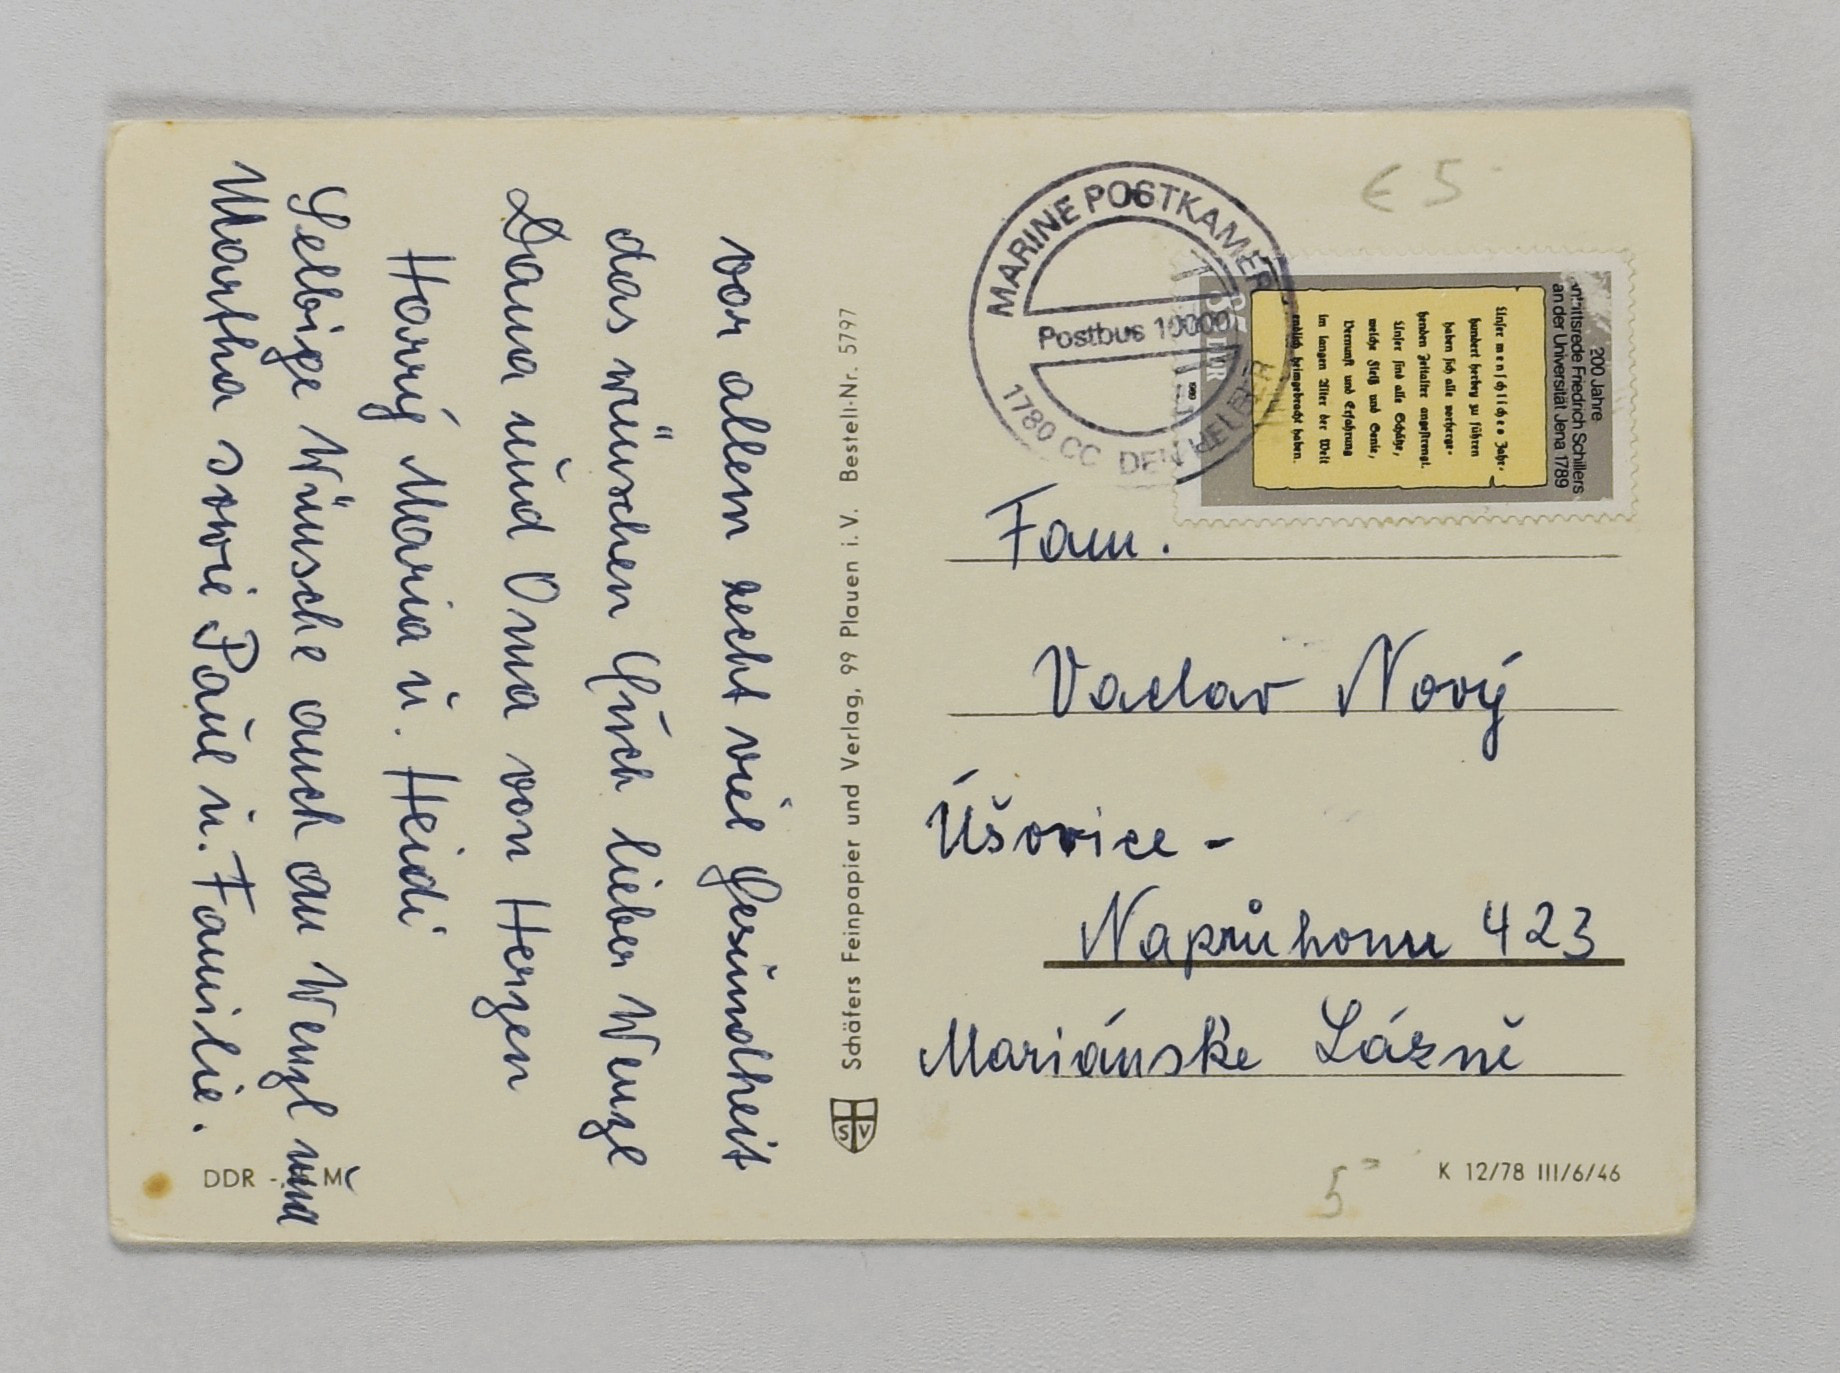 vor allem recht viel Gesundheit
das wünschen Euch lieber Wenzl
Dana und Oma von Herzen
Harry Maria u. Heidi
Selbige Wünsche auch an Wenzl und
Martha sowie Paul u. Familie.
DDR
M
Schäfers Feinpapier und Verlag, 99 Plauen i. V. Bestell-Nr. 5797
S V
MARINE POSTKAMER
Postbus 10000
1780 CC DEN HELDER
€ 5
200 Jahre
Antrittsrede Friedrich Schillers
an der Universität Jena 1789
Unser menschliches Jahr-
hundert herbey zu führen
haben sich alle vorherge-
henden Zeitalter angestrengt.
Unser sind alle Schätze,
welche Fleiß und Genie,
Vernunft und Erfahrung
im langen Alter der Welt
endlich heimgebracht haben.
35 DDR
1989
Fam.
Vaclav Nový
Úšovice -
Naprůhonu 423
Mariánske Lázně
5
K 12/78 III/6/46